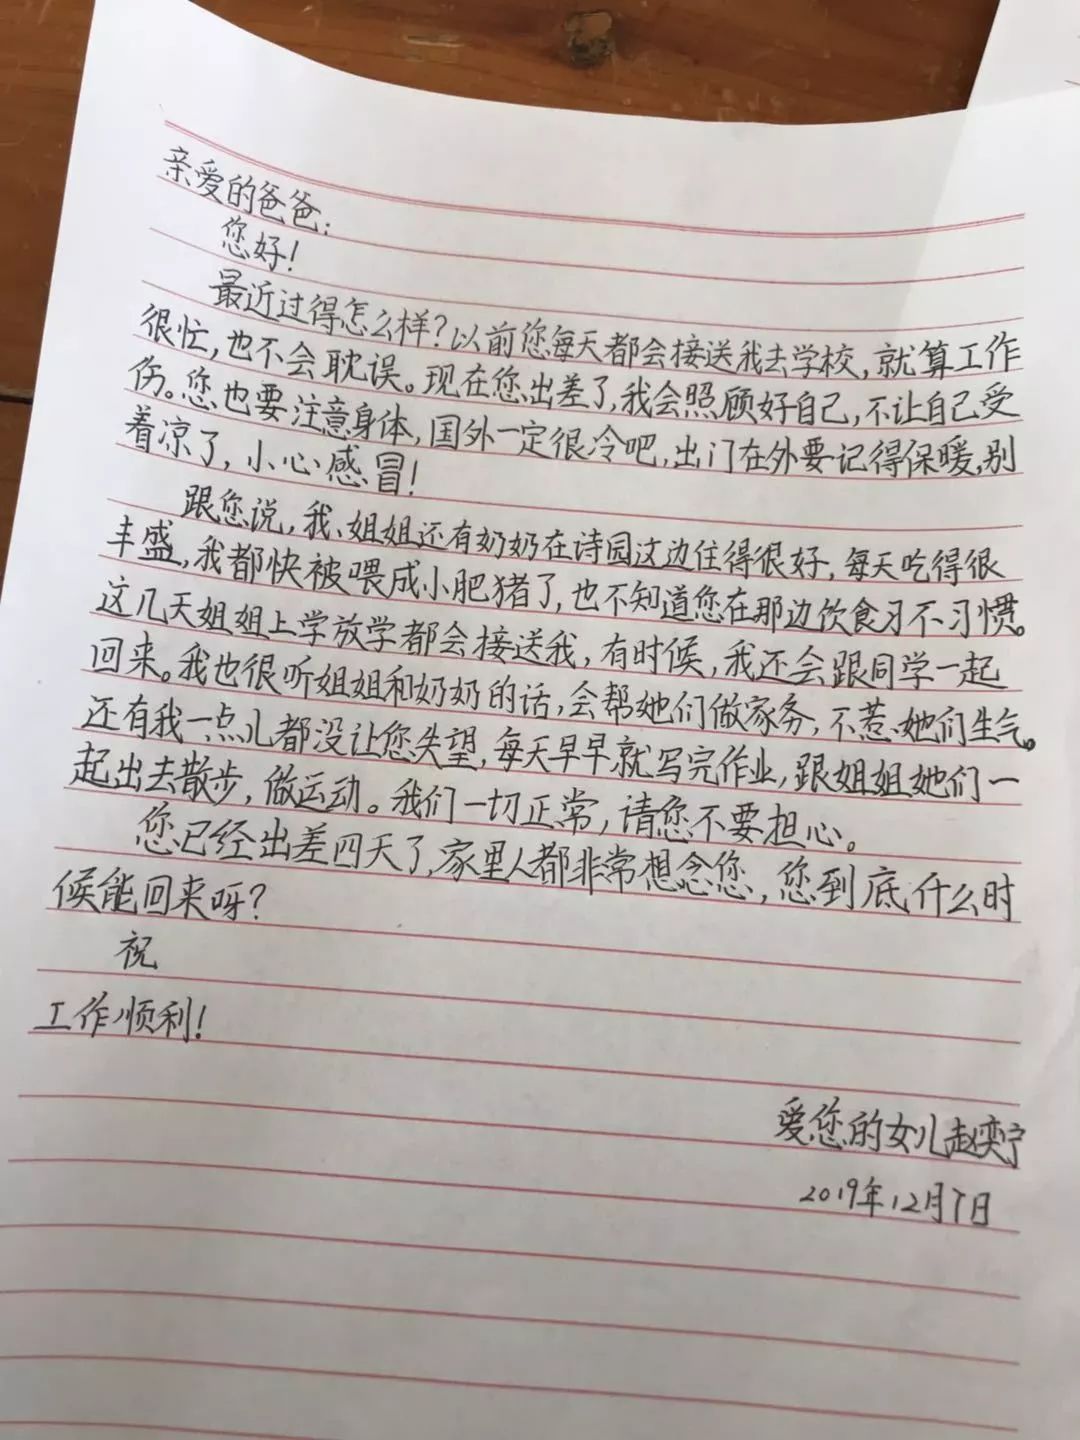 亲爱的爸爸：
您好！
最近过得怎么样？以前您每天都会接送我去学校，就算工作
很忙，也不会耽误。现在您出差了，我会照顾好自己，不让自己受
伤。您也要注意身体，国外一定很冷吧，出门在外要记得保暖，别
着凉了，小心感冒！
跟您说，我、姐姐还有奶奶在诗园这边住得很好，每天吃得很
丰盛，我都快被喂成小肥猪了，也不知道您在那边饮食习不习惯。
这几天姐姐上学放学都会接送我，有时候，我还会跟同学一起
回来。我也很听姐姐和奶奶的话，会帮她们做家务，不惹她们生气。
还有我一点儿都没让您失望，每天早早就写完作业，跟姐姐她们一
起出去散步，做运动。我们一切正常，请您不要担心。
您已经出差四天了，家里人都非常想念您，您到底什么时
候能回来呀？
祝
工作顺利！
爱您的女儿赵奕宁
2019年12月7日